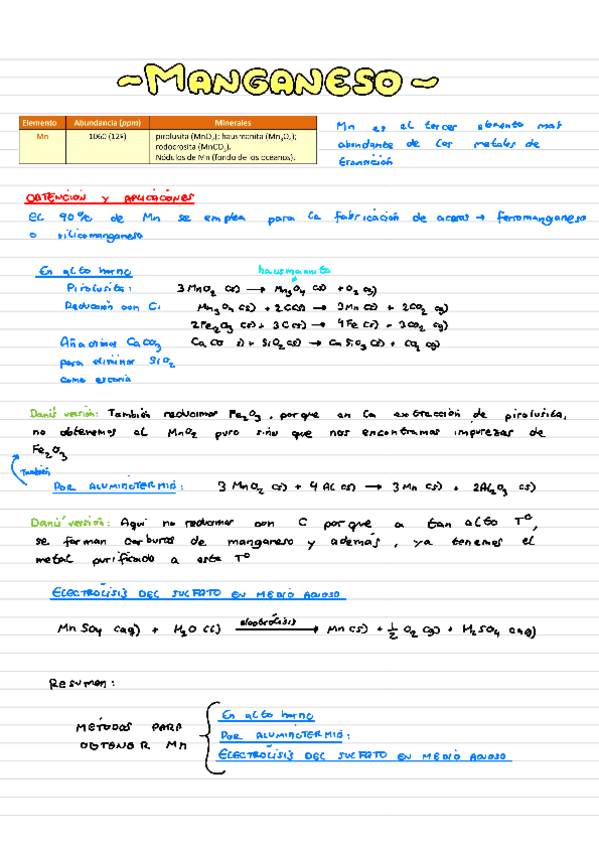 ~MANGANESO~
Elemento Abundancia (ppm) Minerales
Mn 1060 (12º) pirolusita (MnO₂); hausmanita (Mn₃O₄);
rodocrosita (MnCO₃).
Nódulos de Mn (fondo de los oceanos).
Mn es el tercer elemento mas
abundante de los metales de
transición
OBTENCIÓN Y APLICACIONES
El 90% de Mn se emplea para la fabricación de aceros → ferromanganeso
o silicomanganeso
En alto horno
hausmannita
Pirolusita: 3MnO₂ (s) → Mn₃O₄ (s) + O₂ (g)
Reducción con C: Mn₃O₄ (s) + 2C(s) → 3Mn (s) + 2CO₂ (g)
2Fe₂O₃ (s) + 3C(s) → 4Fe (s) + 3CO₂ (g)
Añadimos CaCO₃ CaCO (s) + SiO₂ (s) → CaSiO₃ (s) + CO₂ (g)
para eliminar SiO₂
como escoria
Danis versión: También reducimos Fe₂O₃, porque en la extracción de pirolusita,
no obtenemos el MnO₂ puro sino que nos encontramos impurezas de
Fe₂O₃
También
POR ALUMINOTERMIA: 3MnO₂ (s) + 4Al (s) → 3Mn (s) + 2Al₂O₃ (s)
Danis' versión: Aqui no reducimos con C porque a tan alto Tº,
se forman carburos de manganeso y además, ya tenemos el
metal purificado a este Tº
ELECTRÓLISIS DEL SULFATO EN MEDIO ACUOSO
MnSO₄ (aq) + H₂O (l) electrólisis → Mn (s) + ½ O₂ (g) + H₂SO₄ (aq)
Resumen:
MÉTODOS PARA
OBTENER Mn
En alto horno
POR ALUMINOTERMIA:
ELECTRÓLISIS DEL SULFATO EN MEDIO ACUOSO